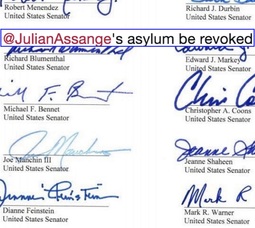 Robert Menendez
United States Senator
Richard J. Durbin
United States Senator
@JulianAssange's asylum be revoked
Richard Blumenthal
United States Senator
Edward J. Markey
United States Senator
Michael F. Bennet
United States Senator
Christopher A. Coons
United States Senator
Joe Manchin III
United States Senator
Jeanne Shaheen
United States Senator
Dianne Feinstein
United States Senator
Mark R
Mark R. Warner
United States Senator